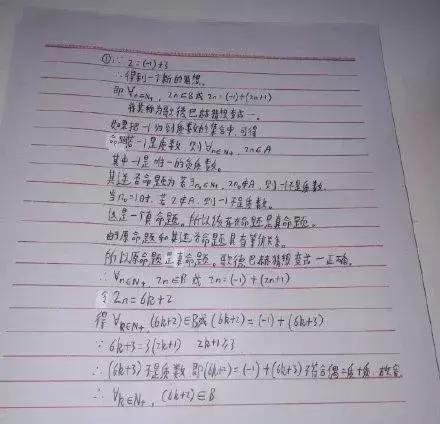 ①∵ 2=(-1)+3
∴得到一个新的猜想。
即 ∀n∈N₊, 2n∈B或 2n=(-1)+(2n+1)
我其称为歌德巴赫猜想变式一。
如果把-1归到质数的集合中,可得
命题若-1是质数,则∀n∈N₊, 2n∈A
其中-1是唯一的负质数。
其逆否命题为若∃n₀∈N₊, 2n₀∉A,则-1不是质数.
当n₀=1时,若2∉A,则-1不是质数。
这是一个真命题。所以逆否命题是真命题。
由原命题和其逆否命题具有等价关系。
所以原命题是真命题。歌德巴赫猜想变式一正确。
∴ ∀n∈N₊, 2n∈B 或 2n=(-1)+(2n+1)
令 2n=6k+2
得 ∀k∈N₊ (6k+2)∈B或(6k+2)=(-1)+(6k+3)
∵ 6k+3=3(2k+1) 2k+1≥3
∴ (6k+3)不是质数 即(6k+2)=(-1)+(6k+3)不符合偶=质+质,
∴ ∀k∈N₊, (6k+2)∈B